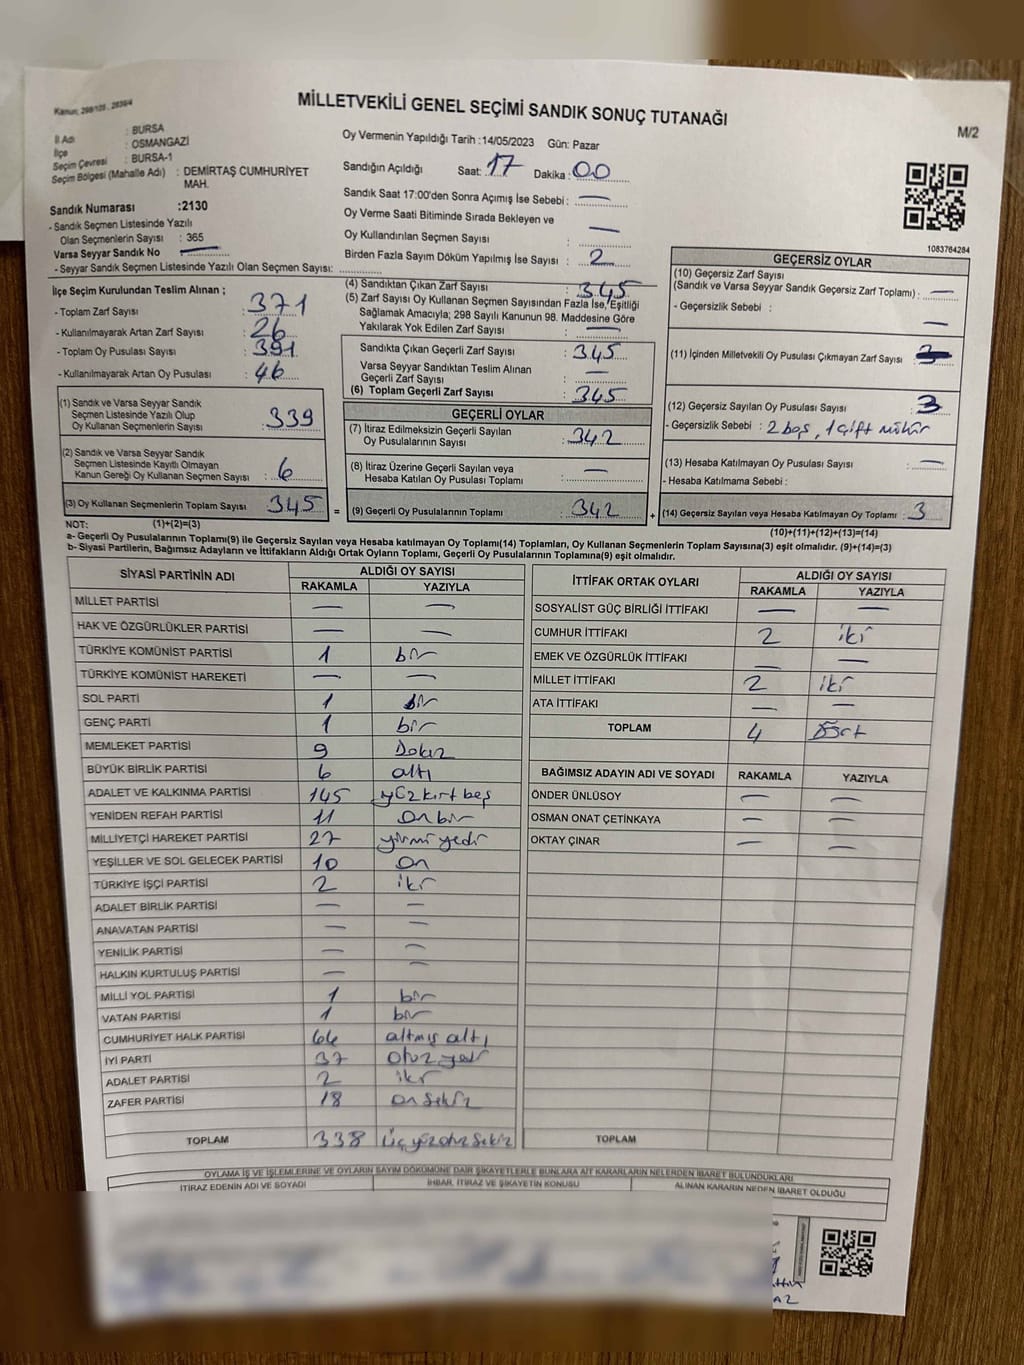 Kanun: 298/105 , 2839/4
MİLLETVEKİLİ GENEL SEÇİMİ SANDIK SONUÇ TUTANAĞI
M/2
İl Adı : BURSA
İlçe : OSMANGAZİ
Seçim Çevresi : BURSA-1
Seçim Bölgesi (Mahalle Adı) : DEMİRTAŞ CUMHURİYET MAH.
Sandık Numarası :2130
- Sandık Seçmen Listesinde Yazılı
Olan Seçmenlerin Sayısı : 365
Varsa Seyyar Sandık No : —
- Seyyar Sandık Seçmen Listesinde Yazılı Olan Seçmen Sayısı:
Oy Vermenin Yapıldığı Tarih :14/05/2023 Gün: Pazar
Sandığın Açıldığı Saat: 17 Dakika : 00
Sandık Saat 17:00'den Sonra Açımış İse Sebebi : —
Oy Verme Saati Bitiminde Sırada Bekleyen ve
Oy Kullandırılan Seçmen Sayısı : —
Birden Fazla Sayım Döküm Yapılmış İse Sayısı : 2
1083764284
İlçe Seçim Kurulundan Teslim Alınan ;
- Toplam Zarf Sayısı : 371
- Kullanılmayarak Artan Zarf Sayısı : 26
- Toplam Oy Pusulası Sayısı : 391
- Kullanılmayarak Artan Oy Pusulası : 46
(1) Sandık ve Varsa Seyyar Sandık
Seçmen Listesinde Yazılı Olup
Oy Kullanan Seçmenlerin Sayısı : 339
(2) Sandık ve Varsa Seyyar Sandık
Seçmen Listesinde Kayıtlı Olmayan
Kanun Gereği Oy Kullanan Seçmen Sayısı : 6
(3) Oy Kullanan Seçmenlerin Toplam Sayısı : 345 =
(4) Sandıktan Çıkan Zarf Sayısı : 345
(5) Zarf Sayısı Oy Kullanan Seçmen Sayısından Fazla İse, Eşitliği
Sağlamak Amacıyla; 298 Sayılı Kanunun 98. Maddesine Göre
Yakılarak Yok Edilen Zarf Sayısı : —
Sandıkta Çıkan Geçerli Zarf Sayısı : 345
Varsa Seyyar Sandıktan Teslim Alınan
Geçerli Zarf Sayısı : —
(6) Toplam Geçerli Zarf Sayısı : 345
GEÇERLİ OYLAR
(7) İtiraz Edilmeksizin Geçerli Sayılan
Oy Pusulalarının Sayısı : 342
(8) İtiraz Üzerine Geçerli Sayılan veya
Hesaba Katılan Oy Pusulası Toplamı : —
(9) Geçerli Oy Pusulalarının Toplamı : 342 +
GEÇERSİZ OYLAR
(10) Geçersiz Zarf Sayısı
(Sandık ve Varsa Seyyar Sandık Geçersiz Zarf Toplamı) : —
- Geçersizlik Sebebi :
—
(11) İçinden Milletvekili Oy Pusulası Çıkmayan Zarf Sayısı : 3
(12) Geçersiz Sayılan Oy Pusulası Sayısı : 3
- Geçersizlik Sebebi : 2 boş, 1 çift mühür
(13) Hesaba Katılmayan Oy Pusulası Sayısı : —
- Hesaba Katılmama Sebebi :
(14) Geçersiz Sayılan veya Hesaba Katılmayan Oy Toplamı : 3
NOT: (1)+(2)=(3) (10)+(11)+(12)+(13)=(14)
a- Geçerli Oy Pusulalarının Toplamı(9) ile Geçersiz Sayılan veya Hesaba katılmayan Oy Toplamı(14) Toplamları, Oy Kullanan Seçmenlerin Toplam Sayısına(3) eşit olmalıdır. (9)+(14)=(3)
b- Siyasi Partilerin, Bağımsız Adayların ve İttifakların Aldığı Ortak Oyların Toplamı, Geçerli Oy Pusulalarının Toplamına(9) eşit olmalıdır.
SİYASİ PARTİNİN ADI ALDIĞI OY SAYISI
RAKAMLA YAZIYLA
MİLLET PARTİSİ — —
HAK VE ÖZGÜRLÜKLER PARTİSİ — —
TÜRKİYE KOMÜNİST PARTİSİ 1 bir
TÜRKİYE KOMÜNİST HAREKETİ — —
SOL PARTİ 1 bir
GENÇ PARTİ 1 bir
MEMLEKET PARTİSİ 9 Dokuz
BÜYÜK BİRLİK PARTİSİ 6 altı
ADALET VE KALKINMA PARTİSİ 145 yüzkırk beş
YENİDEN REFAH PARTİSİ 11 On bir
MİLLİYETÇİ HAREKET PARTİSİ 27 yirmi yedi
YEŞİLLER VE SOL GELECEK PARTİSİ 10 On
TÜRKİYE İŞÇİ PARTİSİ 2 iki
ADALET BİRLİK PARTİSİ — —
ANAVATAN PARTİSİ — —
YENİLİK PARTİSİ — —
HALKIN KURTULUŞ PARTİSİ — —
MİLLİ YOL PARTİSİ 1 bir
VATAN PARTİSİ 1 bir
CUMHURİYET HALK PARTİSİ 66 altmış altı
İYİ PARTİ 37 Otuz yedi
ADALET PARTİSİ 2 iki
ZAFER PARTİSİ 18 On Sekiz
TOPLAM 338 Üç yüz otuz Sekiz
İTTİFAK ORTAK OYLARI ALDIĞI OY SAYISI
RAKAMLA YAZIYLA
SOSYALİST GÜÇ BİRLİĞİ İTTİFAKI — —
CUMHUR İTTİFAKI 2 iki
EMEK VE ÖZGÜRLÜK İTTİFAKI — —
MİLLET İTTİFAKI 2 iki
ATA İTTİFAKI — —
TOPLAM 4 Dört
BAĞIMSIZ ADAYIN ADI VE SOYADI RAKAMLA YAZIYLA
ÖNDER ÜNLÜSOY — —
OSMAN ONAT ÇETİNKAYA — —
OKTAY ÇINAR — —
TOPLAM
OYLAMA İŞ VE İŞLEMLERİNE VE OYLARIN SAYIM DÖKÜMÜNE DAİR ŞİKAYETLERLE BUNLARA AİT KARARLARIN NELERDEN İBARET BULUNDUKLARI
İTİRAZ EDENİN ADI VE SOYADI İHBAR, İTİRAZ VE ŞİKAYETİN KONUSU ALINAN KARARIN NEDEN İBARET OLDUĞU